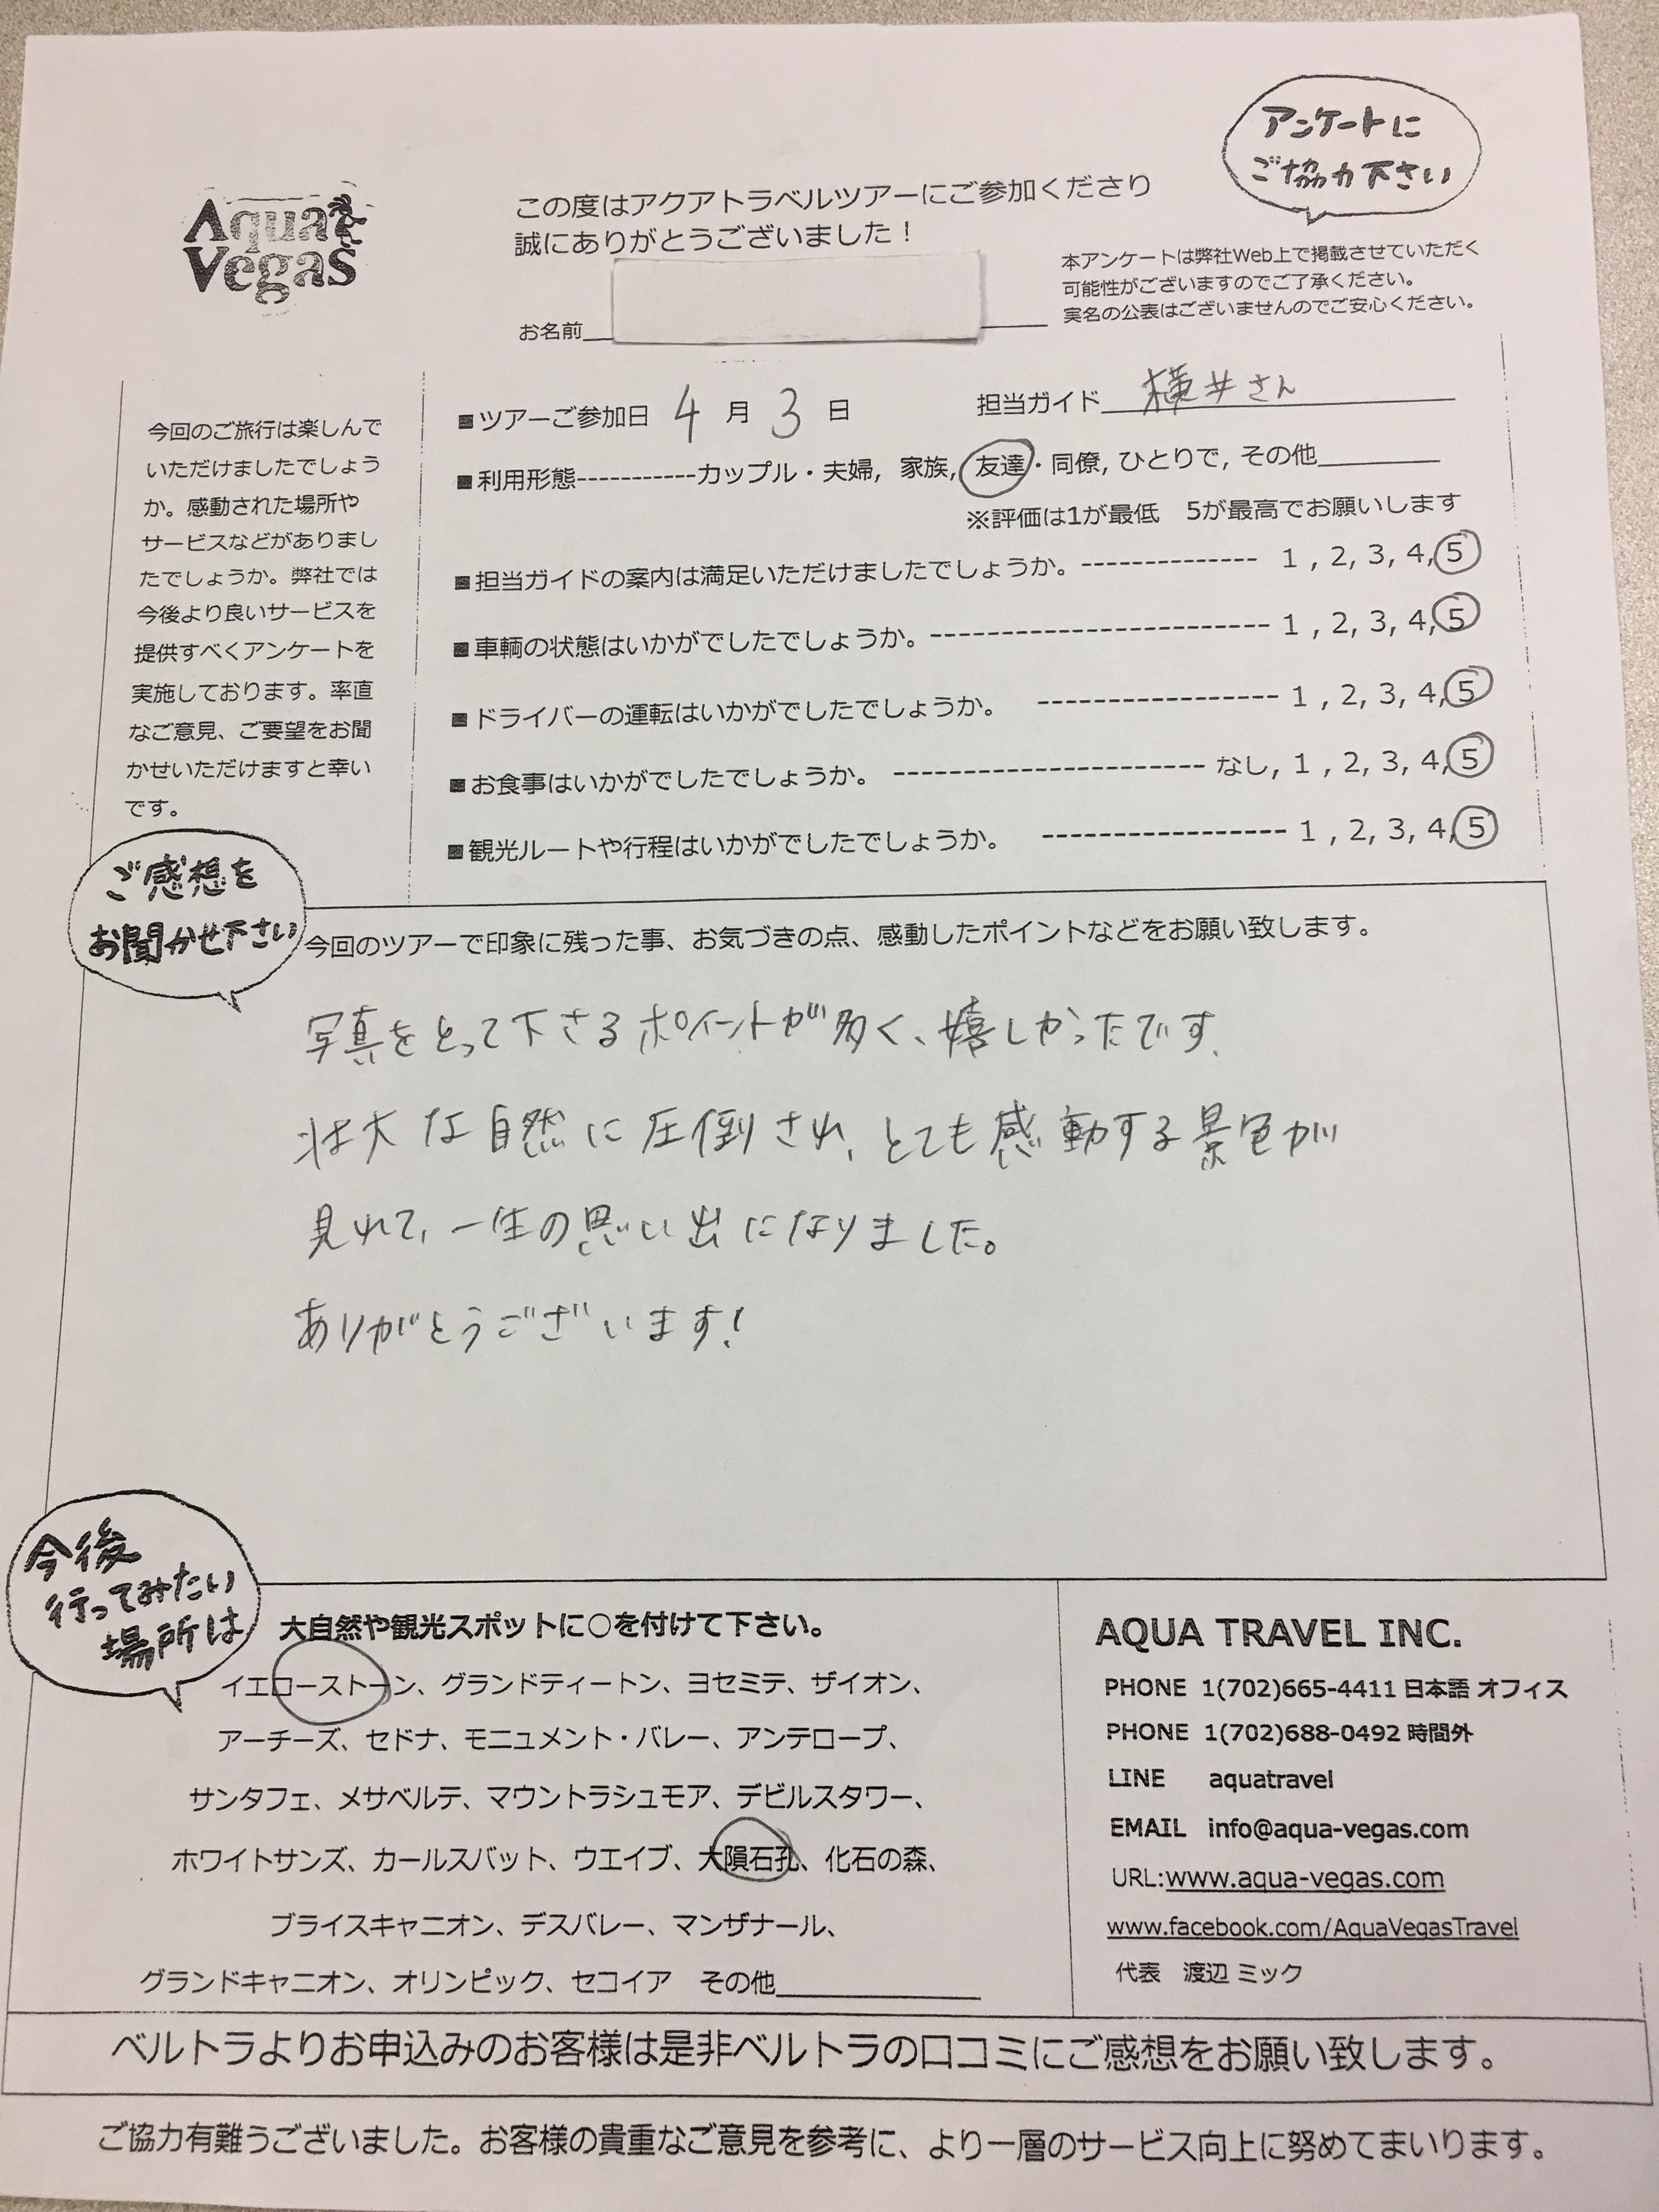 アンケートに
ご協力下さい
Aqua
Vegas
この度はアクアトラベルツアーにご参加くださり
誠にありがとうございました！
本アンケートは弊社Web上で掲載させていただく
可能性がございますのでご了承ください。
実名の公表はございませんのでご安心ください。
お名前
今回のご旅行は楽しんで
いただけましたでしょう
か。感動された場所や
サービスなどがありまし
たでしょうか。弊社では
今後より良いサービスを
提供すべくアンケートを
実施しております。率直
なご意見、ご要望をお聞
かせいただけますと幸い
です。
■ツアーご参加日 4 月 3 日 担当ガイド 横井さん
■利用形態-----------カップル・夫婦, 家族, 友達・同僚, ひとりで, その他
※評価は1が最低 5が最高でお願いします
■担当ガイドの案内は満足いただけましたでしょうか。------------- 1 , 2, 3, 4, 5
■車輌の状態はいかがでしたでしょうか。------------------------ 1 , 2, 3, 4, 5
■ドライバーの運転はいかがでしたでしょうか。 ----------------- 1 , 2, 3, 4, 5
■お食事はいかがでしたでしょうか。 ---------------------- なし, 1 , 2, 3, 4, 5
■観光ルートや行程はいかがでしたでしょうか。 ----------------- 1 , 2, 3, 4, 5
ご感想を
お聞かせ下さい
今回のツアーで印象に残った事、お気づきの点、感動したポイントなどをお願い致します。
写真をとって下さるポイントが多く、嬉しかったです。
壮大な自然に圧倒され、とても感動する景色が
見れて、一生の思い出になりました。
ありがとうございます!
今後
行ってみたい
場所は
大自然や観光スポットに○を付けて下さい。
イエローストーン、グランドティートン、ヨセミテ、ザイオン、
アーチーズ、セドナ、モニュメント・バレー、アンテロープ、
サンタフェ、メサベルテ、マウントラシュモア、デビルスタワー、
ホワイトサンズ、カールスバット、ウエイブ、大隕石孔、化石の森、
ブライスキャニオン、デスバレー、マンザナール、
グランドキャニオン、オリンピック、セコイア その他
AQUA TRAVEL INC.
PHONE 1(702)665-4411 日本語 オフィス
PHONE 1(702)688-0492 時間外
LINE aquatravel
EMAIL info@aqua-vegas.com
URL:www.aqua-vegas.com
www.facebook.com/AquaVegasTravel
代表 渡辺 ミック
ベルトラよりお申込みのお客様は是非ベルトラの口コミにご感想をお願い致します。
ご協力有難うございました。お客様の貴重なご意見を参考に、より一層のサービス向上に努めてまいります。